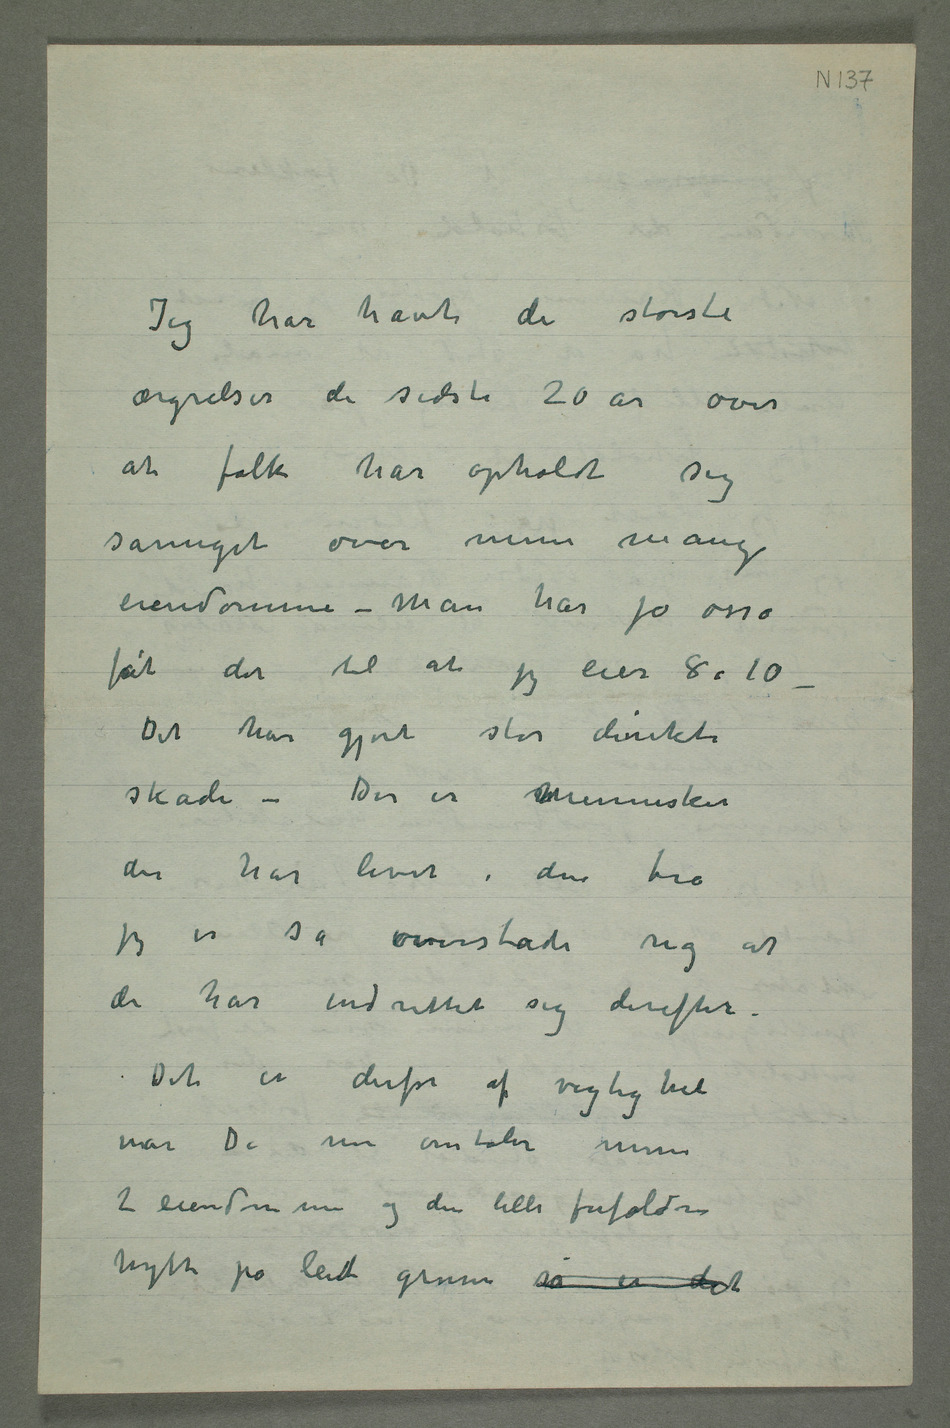 N 137
Jeg har havt de störste
ærgrelser de sidste 20 år over
at folk har opholdt sig
over mine mange
eiendomme – Man har jo osså
fåt det til at jeg eier 8 a 10 –
Det har gjort stor direkte
skade – Der er Mennesker
der har levet i den tro
jeg er så overstadi rig at
de har indrettet sig derefter.
Det er derfor af vigtighet
når De nu omtaler mine
2 eiendomme og den lille forfaldne
hytte på leiet grunn så er det